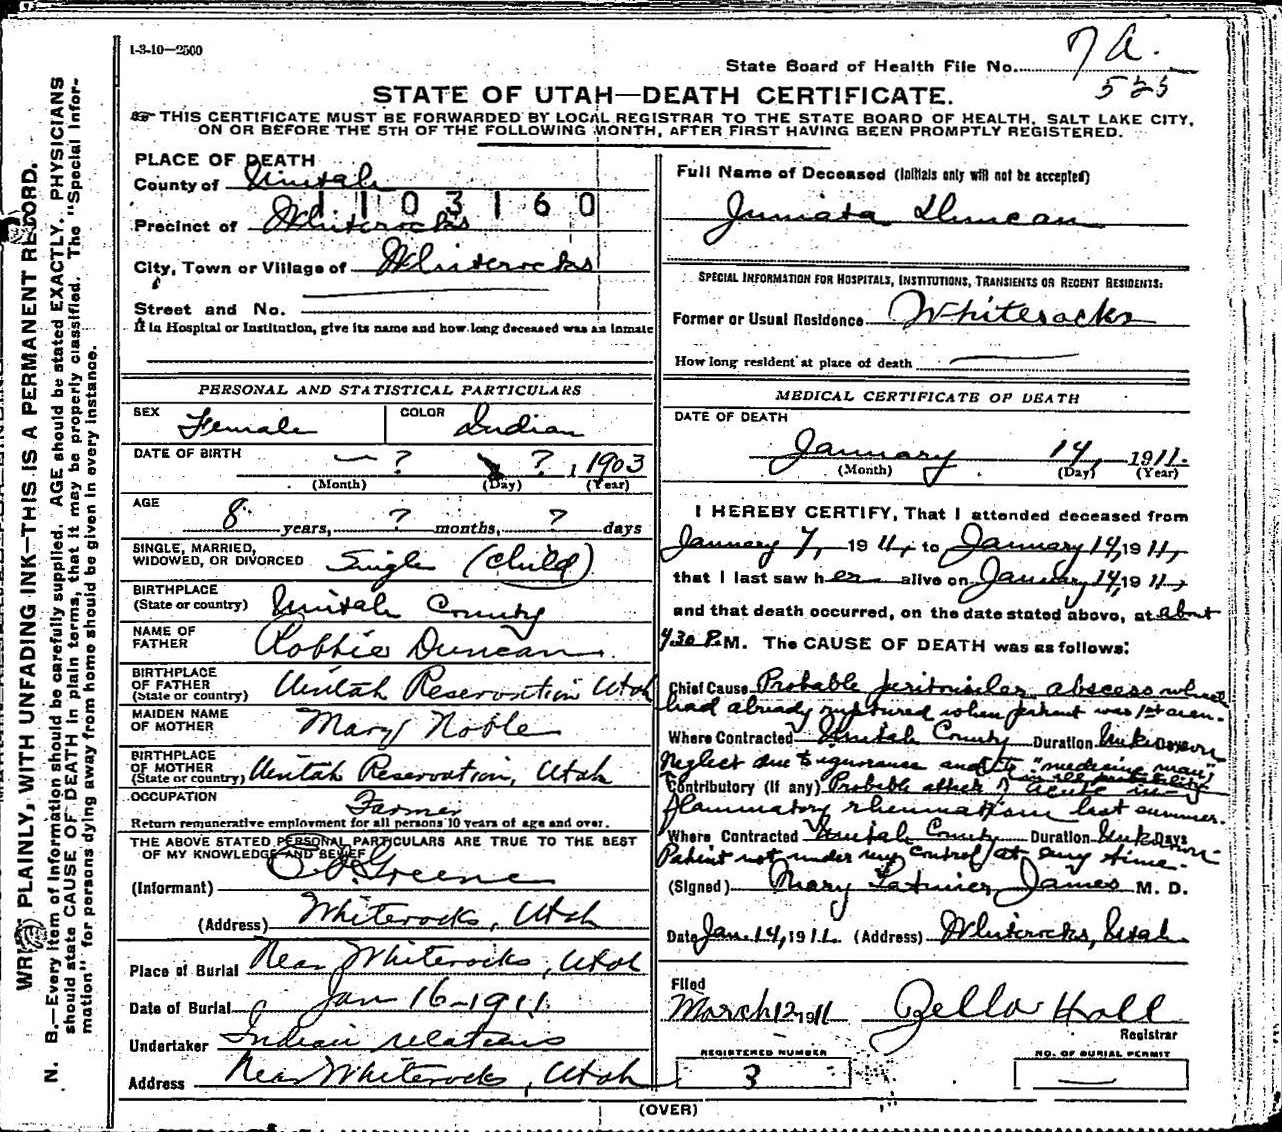 1-3-10—2500
7 A.
State Board of Health File No.
525
STATE OF UTAH—DEATH CERTIFICATE.
THIS CERTIFICATE MUST BE FORWARDED BY LOCAL REGISTRAR TO THE STATE BOARD OF HEALTH, SALT LAKE CITY,
ON OR BEFORE THE 5TH OF THE FOLLOWING MONTH, AFTER FIRST HAVING BEEN PROMPTLY REGISTERED.
PLACE OF DEATH
County of Uintah
1103160
Precinct of Whiterocks
City, Town or Village of Whiterocks
Street and No.
If in Hospital or Institution, give its name and how long deceased was an inmate
PERSONAL AND STATISTICAL PARTICULARS
SEX Female COLOR Indian
DATE OF BIRTH — ? ? , 1903
(Month) (Day) (Year)
AGE
8 years, ? months, ? days
SINGLE, MARRIED,
WIDOWED, OR DIVORCED Single (child)
BIRTHPLACE
(State or country) Uintah County
NAME OF
FATHER Robbie Duncan
BIRTHPLACE
OF FATHER
(State or country) Uintah Reservation Utah
MAIDEN NAME
OF MOTHER Mary Noble
BIRTHPLACE
OF MOTHER
(State or country) Uintah Reservation, Utah
OCCUPATION Farmer
Return remunerative employment for all persons 10 years of age and over.
THE ABOVE STATED PERSONAL PARTICULARS ARE TRUE TO THE BEST
OF MY KNOWLEDGE AND BELIEF
(Informant) Greene
(Address) Whiterocks, Utah
Place of Burial Near Whiterocks, Utah
Date of Burial Jan 16-1911
Undertaker Indian relations
Address Near Whiterocks, Utah
Full Name of Deceased (Initials only will not be accepted)
Juniata Duncan
SPECIAL INFORMATION FOR HOSPITALS, INSTITUTIONS, TRANSIENTS OR RECENT RESIDENTS:
Former or Usual Residence Whiterocks
How long resident at place of death
MEDICAL CERTIFICATE OF DEATH
DATE OF DEATH
January 14, 1911.
(Month) (Day) (Year)
I HEREBY CERTIFY, That I attended deceased from
January 7, 1911, to January 14, 1911,
that I last saw her alive on January 14, 1911,
and that death occurred, on the date stated above, at about
430 P.M. The CAUSE OF DEATH was as follows:
Chief Cause Probable peritonsilar abscess which
had already ruptured when patient was 1st seen.
Where Contracted Uintah County Duration Unknown Days
Neglect due to ignorance and to "medicine man"
(in all probability)
Contributory (if any) Probable attack of acute in-
flammatory rheumatism last summer.
Where Contracted Uintah County Duration Unknown Days
Patient not under my control at any time.
(Signed) Mary Latimer James M. D.
Date Jan. 14, 1911. (Address) Whiterocks, Utah
Filed
March 12, 1911 Zella Hall
Registrar
REGISTERED NUMBER
3
NO. OF BURIAL PERMIT
(OVER)
WRITE PLAINLY, WITH UNFADING INK—THIS IS A PERMANENT RECORD.
N. B.—Every item of information should be carefully supplied. AGE should be stated EXACTLY. PHYSICIANS
should state CAUSE OF DEATH in plain terms, that it may be properly classified. The "Special Infor-
mation" for persons dying away from home should be given in every instance.